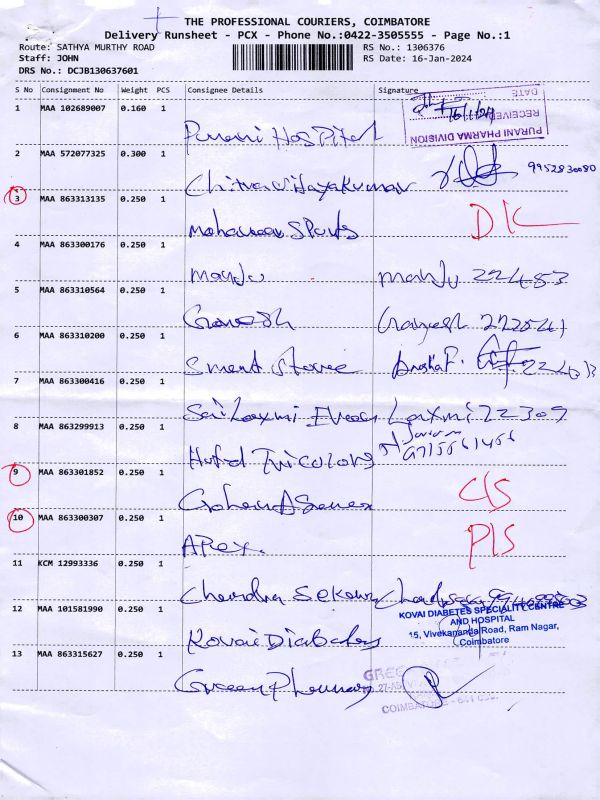 THE PROFESSIONAL COURIERS, COIMBATORE
Delivery Runsheet - PCX - Phone No.:0422-3505555 - Page No.:1
Route: SATHYA MURTHY ROAD RS No.: 1306376
Staff: JOHN RS Date: 16-Jan-2024
DRS No.: DCJB130637601
S No Consignment No Weight PCS Consignee Details Signature
1 MAA 102689007 0.160 1
Purani Hospital
PURANI PHARMA DIVISION
RECEIVED
DATE
2 MAA 572077325 0.300 1
Chitra Vijayakumar 9952830080
3 MAA 863313135 0.250 1
Sports D/C
4 MAA 863300176 0.250 1
Manju Manju 22483
5 MAA 863310564 0.250 1
Ganesh Ganesh
6 MAA 863310200 0.250 1
Smart Stove
7 MAA 863300416 0.250 1
Sai Laxmi Laxmi 22309
8 MAA 863299913 0.250 1
Tricolors 9715561456
9 MAA 863301852 0.250 1
C/S
10 MAA 863300307 0.250 1
Apex. P/S
11 KCM 12993336 0.250 1
Chandra Sekar
12 MAA 101581990 0.250 1
Kovai Diabetes
KOVAI DIABETES SPECIALITY CENTRE
AND HOSPITAL
15, Vivekananda Road, Ram Nagar,
Coimbatore
13 MAA 863315627 0.250 1
Green